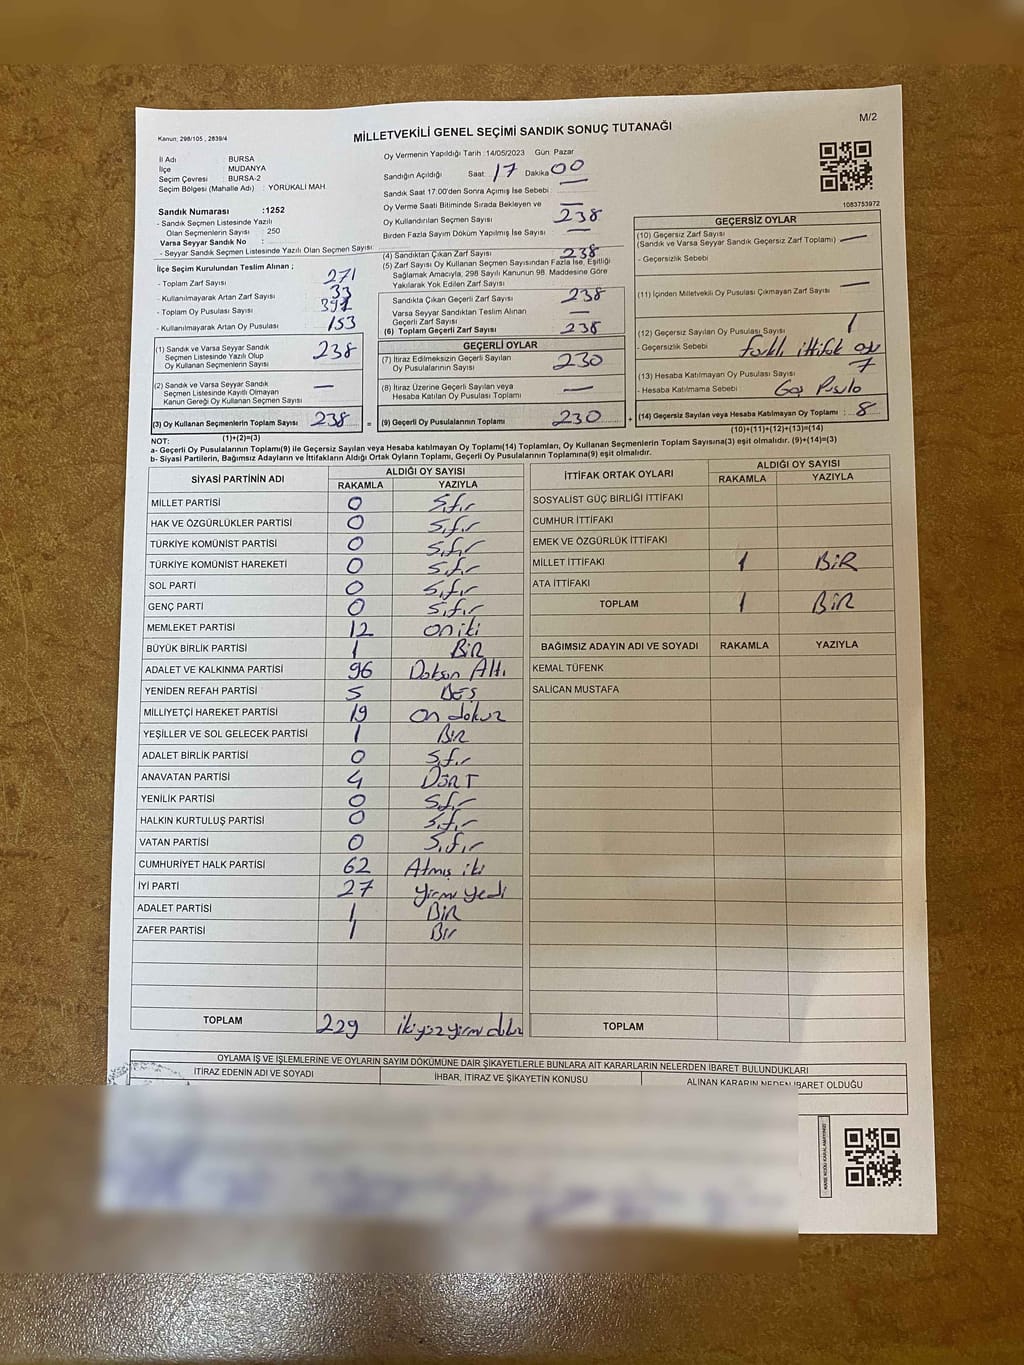 M/2
Kanun: 298/105 , 2839/4
MİLLETVEKİLİ GENEL SEÇİMİ SANDIK SONUÇ TUTANAĞI
İl Adı : BURSA
İlçe : MUDANYA
Seçim Çevresi : BURSA-2
Seçim Bölgesi (Mahalle Adı) : YÖRÜKALİ MAH
Sandık Numarası :1252
- Sandık Seçmen Listesinde Yazılı
Olan Seçmenlerin Sayısı : 250
Varsa Seyyar Sandık No :
- Seyyar Sandık Seçmen Listesinde Yazılı Olan Seçmen Sayısı:
İlçe Seçim Kurulundan Teslim Alınan ;
- Toplam Zarf Sayısı : 271
- Kullanılmayarak Artan Zarf Sayısı : 33
- Toplam Oy Pusulası Sayısı : 391
- Kullanılmayarak Artan Oy Pusulası : 153
(1) Sandık ve Varsa Seyyar Sandık
Seçmen Listesinde Yazılı Olup
Oy Kullanan Seçmenlerin Sayısı 238
(2) Sandık ve Varsa Seyyar Sandık
Seçmen Listesinde Kayıtlı Olmayan
Kanun Gereği Oy Kullanan Seçmen Sayısı —
(3) Oy Kullanan Seçmenlerin Toplam Sayısı 238
(1)+(2)=(3)
Oy Vermenin Yapıldığı Tarih :14/05/2023 Gün: Pazar
Sandığın Açıldığı Saat: 17 Dakika: 00
Sandık Saat 17.00'den Sonra Açımış İse Sebebi : —
Oy Verme Saati Bitiminde Sırada Bekleyen ve : —
Oy Kullandırılan Seçmen Sayısı : 238
Birden Fazla Sayım Döküm Yapılmış İse Sayısı : —
(4) Sandıktan Çıkan Zarf Sayısı : 238
(5) Zarf Sayısı Oy Kullanan Seçmen Sayısından Fazla İse, Eşitliği
Sağlamak Amacıyla, 298 Sayılı Kanunun 98. Maddesine Göre
Yakılarak Yok Edilen Zarf Sayısı :
Sandıkta Çıkan Geçerli Zarf Sayısı : 238
Varsa Seyyar Sandıktan Teslim Alınan
Geçerli Zarf Sayısı : —
(6) Toplam Geçerli Zarf Sayısı : 238
GEÇERLİ OYLAR
(7) İtiraz Edilmeksizin Geçerli Sayılan
Oy Pusulalarının Sayısı : 230
(8) İtiraz Üzerine Geçerli Sayılan veya
Hesaba Katılan Oy Pusulası Toplamı : —
(9) Geçerli Oy Pusulalarının Toplamı : 230
1083753972
GEÇERSİZ OYLAR
(10) Geçersiz Zarf Sayısı : —
(Sandık ve Varsa Seyyar Sandık Geçersiz Zarf Toplamı)
- Geçersizlik Sebebi :
(11) İçinden Milletvekili Oy Pusulası Çıkmayan Zarf Sayısı : —
(12) Geçersiz Sayılan Oy Pusulası Sayısı : 1
- Geçersizlik Sebebi : farklı ittifak oyu
(13) Hesaba Katılmayan Oy Pusulası Sayısı : 7
- Hesaba Katılmama Sebebi : Pusula
(14) Geçersiz Sayılan veya Hesaba Katılmayan Oy Toplamı : 8
(10)+(11)+(12)+(13)=(14)
NOT:
a- Geçerli Oy Pusulalarının Toplamı(9) ile Geçersiz Sayılan veya Hesaba katılmayan Oy Toplamı(14) Toplamları, Oy Kullanan Seçmenlerin Toplam Sayısına(3) eşit olmalıdır. (9)+(14)=(3)
b- Siyasi Partilerin, Bağımsız Adayların ve İttifakların Aldığı Ortak Oyların Toplamı, Geçerli Oy Pusulalarının Toplamına(9) eşit olmalıdır.
SİYASİ PARTİNİN ADI ALDIĞI OY SAYISI
RAKAMLA YAZIYLA
MİLLET PARTİSİ 0 Sıfır
HAK VE ÖZGÜRLÜKLER PARTİSİ 0 Sıfır
TÜRKİYE KOMÜNİST PARTİSİ 0 Sıfır
TÜRKİYE KOMÜNİST HAREKETİ 0 Sıfır
SOL PARTİ 0 Sıfır
GENÇ PARTİ 0 Sıfır
MEMLEKET PARTİSİ 12 on iki
BÜYÜK BİRLİK PARTİSİ 1 BİR
ADALET VE KALKINMA PARTİSİ 96 Doksan Altı
YENİDEN REFAH PARTİSİ 5 BEŞ
MİLLİYETÇİ HAREKET PARTİSİ 19 on dokuz
YEŞİLLER VE SOL GELECEK PARTİSİ 1 BİR
ADALET BİRLİK PARTİSİ 0 Sıfır
ANAVATAN PARTİSİ 4 DÖRT
YENİLİK PARTİSİ 0 Sıfır
HALKIN KURTULUŞ PARTİSİ 0 Sıfır
VATAN PARTİSİ 0 Sıfır
CUMHURİYET HALK PARTİSİ 62 Atmış iki
İYİ PARTİ 27 yirmi yedi
ADALET PARTİSİ 1 BİR
ZAFER PARTİSİ 1 Bir
TOPLAM 229 ikiyüz yirmi dokuz
İTTİFAK ORTAK OYLARI ALDIĞI OY SAYISI
RAKAMLA YAZIYLA
SOSYALİST GÜÇ BİRLİĞİ İTTİFAKI
CUMHUR İTTİFAKI
EMEK VE ÖZGÜRLÜK İTTİFAKI
MİLLET İTTİFAKI 1 BİR
ATA İTTİFAKI
TOPLAM 1 BİR
BAĞIMSIZ ADAYIN ADI VE SOYADI RAKAMLA YAZIYLA
KEMAL TÜFENK
SALİCAN MUSTAFA
TOPLAM
OYLAMA İŞ VE İŞLEMLERİNE VE OYLARIN SAYIM DÖKÜMÜNE DAİR ŞİKAYETLERLE BUNLARA AİT KARARLARIN NELERDEN İBARET BULUNDUKLARI
İTİRAZ EDENİN ADI VE SOYADI İHBAR, İTİRAZ VE ŞİKAYETİN KONUSU ALINAN KARARIN NEDEN İBARET OLDUĞU